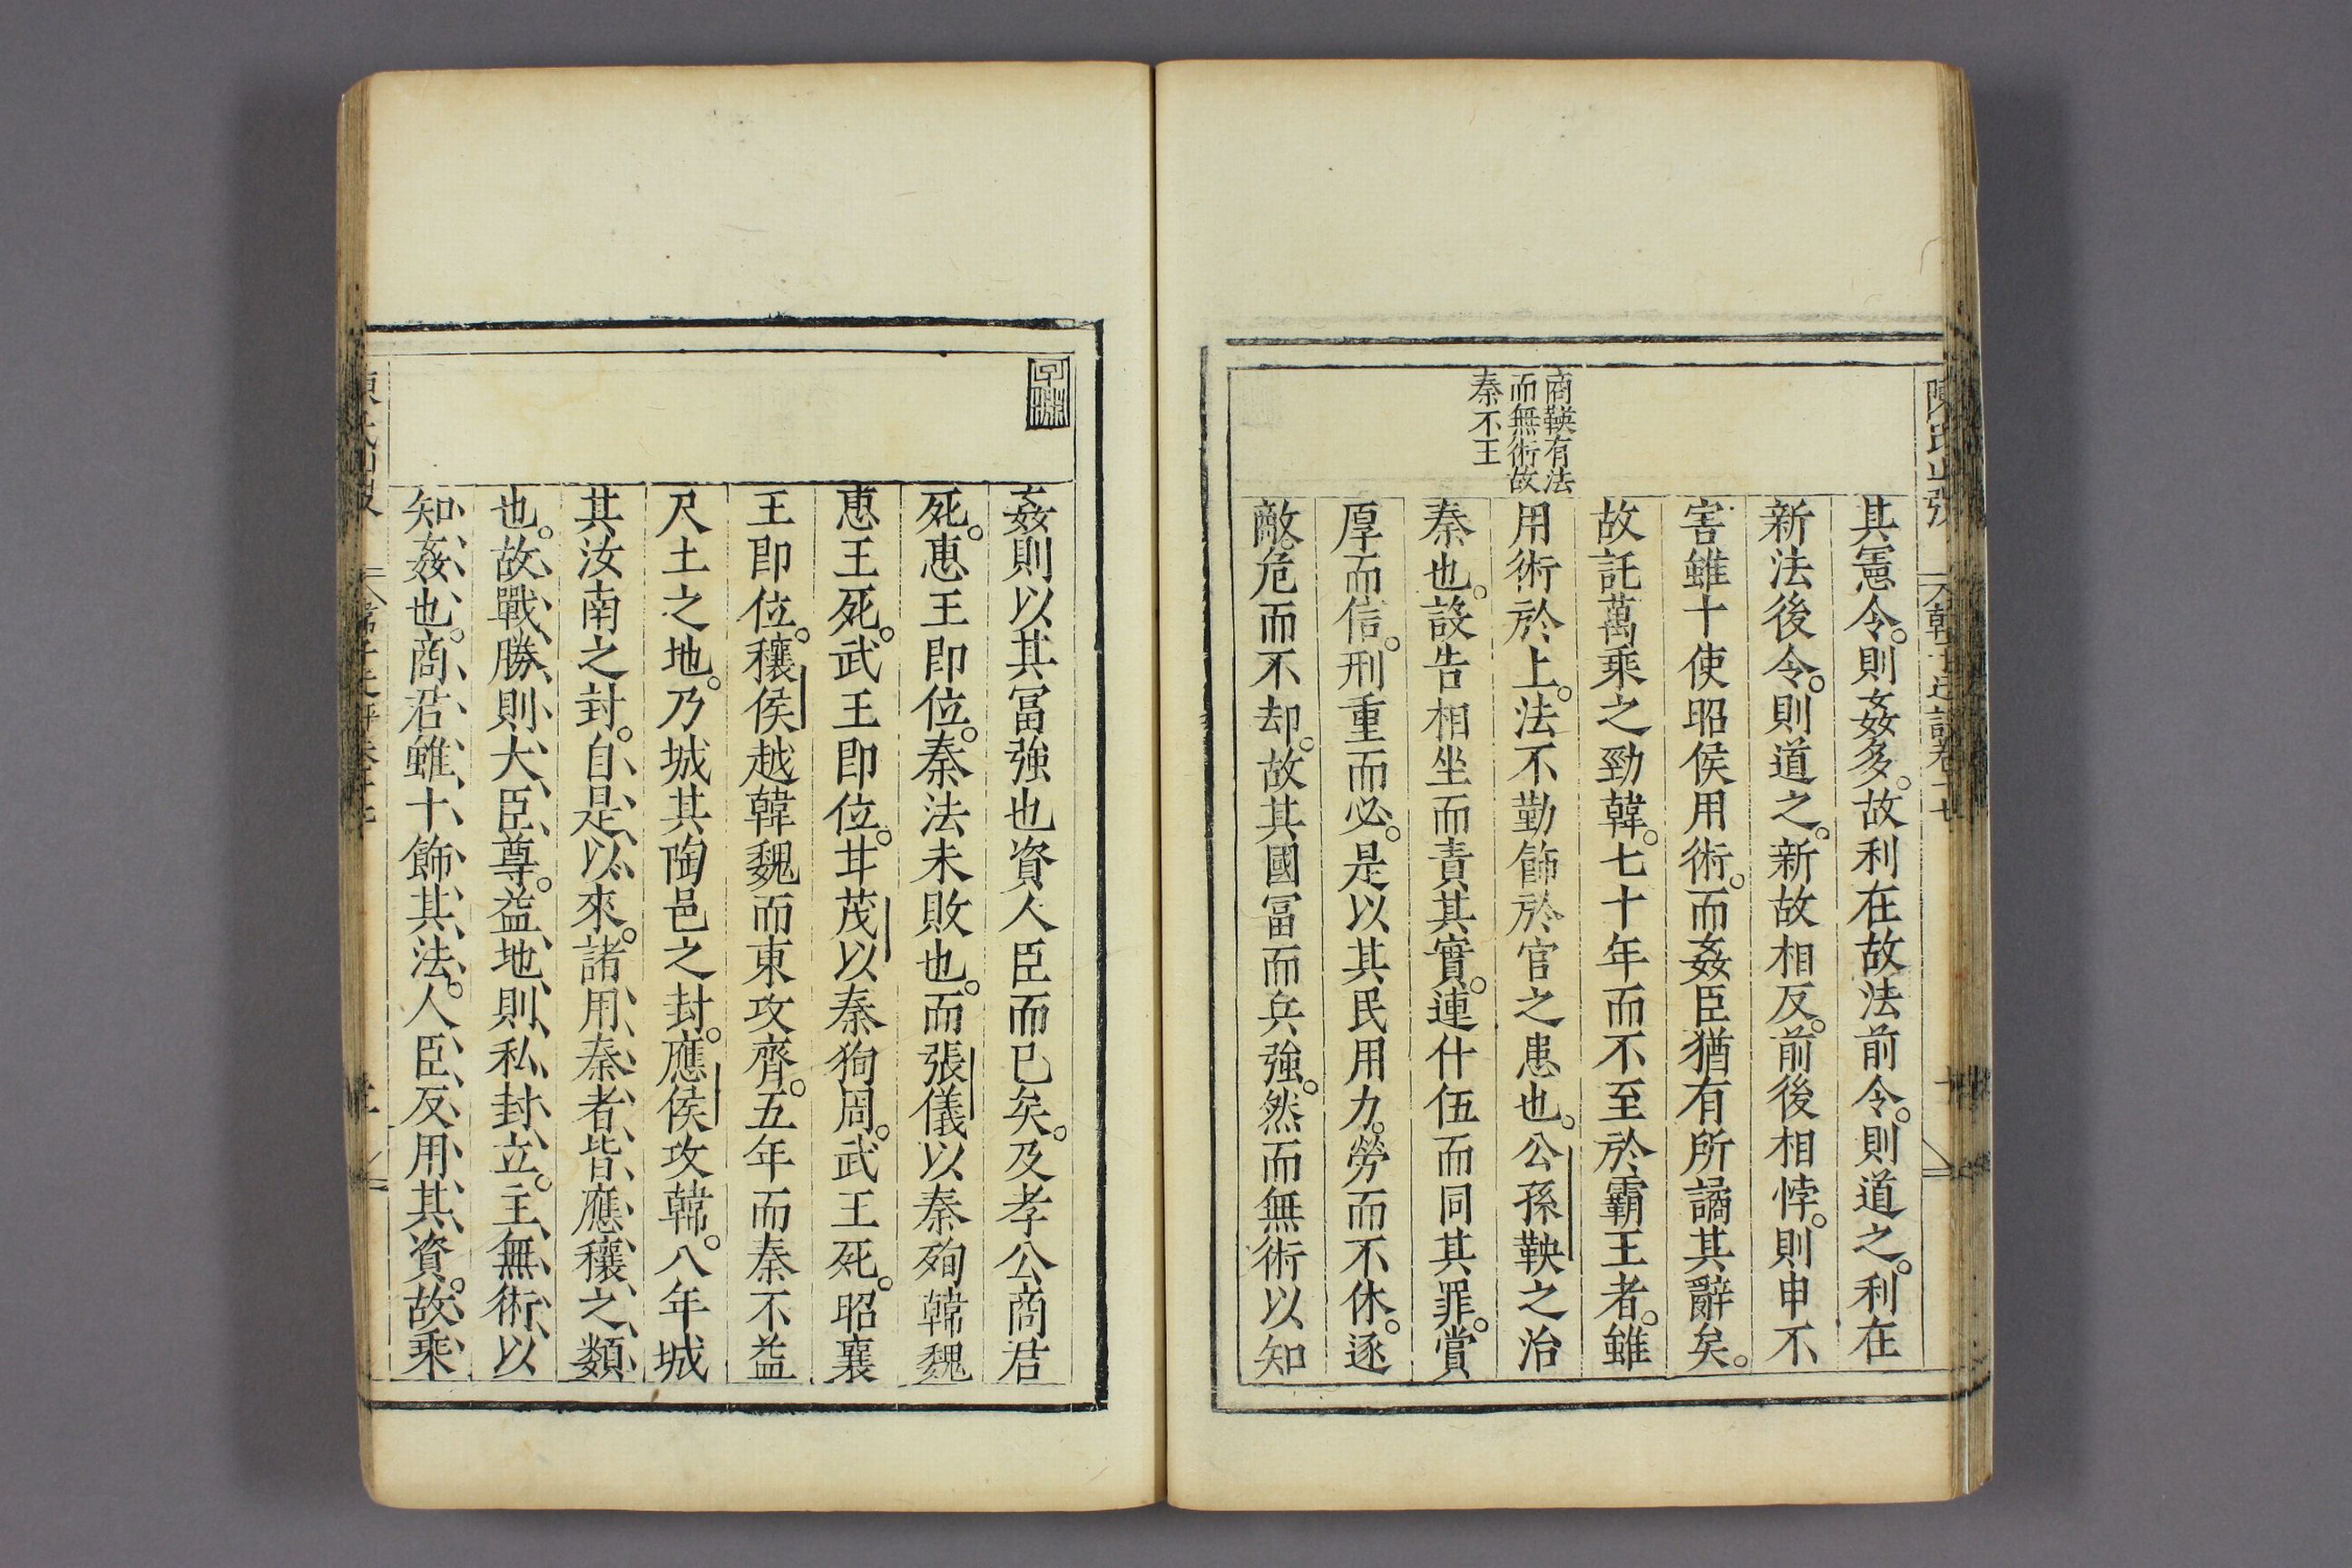 其憲令。則姦多。故利在故法前令。則道之。利在
新法後令。則道之。新故相反。前後相悖。則申不
害雖十使昭侯用術。而姦臣猶有所譎其辭矣。
故託萬乘之勁韓。七十年而不至於霸王者。雖
用術於上。法不勤飾於官之患也。公孫鞅之治
秦也。設告相坐而責其實。連什伍而同其罪。賞
厚而信。刑重而必。是以其民用力。勞而不休。逐
敵。危而不却。故其國冨而兵強。然而無術以知
商鞅有法
而無術故
秦不王
姦則以其冨強也資人臣而已矣。及孝公商君
死。惠王即位。秦法未敗也。而張儀以秦殉韓魏
惠王死。武王即位。甘茂以秦狥周。武王死。昭襄
王即位。穰侯越韓魏而東攻齊。五年而秦不益
尺土之地。乃城其陶邑之封。應侯攻韓。八年城
其汝南之封。自是以來。諸用秦者皆應穰之類
也。故戰勝則大臣尊。益地則私封立。主無術以
知姦也。商君雖十飾其法。人臣反用其資。故乘